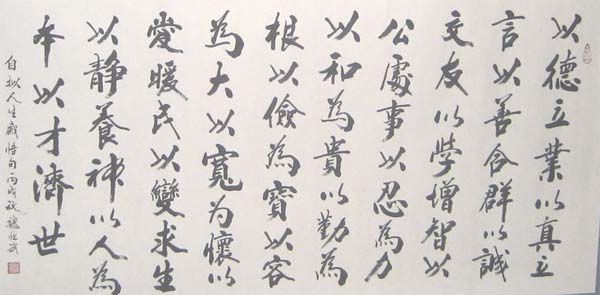 以德立業以真立
言以善合群以誠
交友以學增智以
公處事以忍為力
以和為貴以勤為
根以儉為寶以容
為大以寬为懷以
愛暖民以變求生
以静養神以人為
本以才濟世
自拟人生感悟句丙戌秋魏